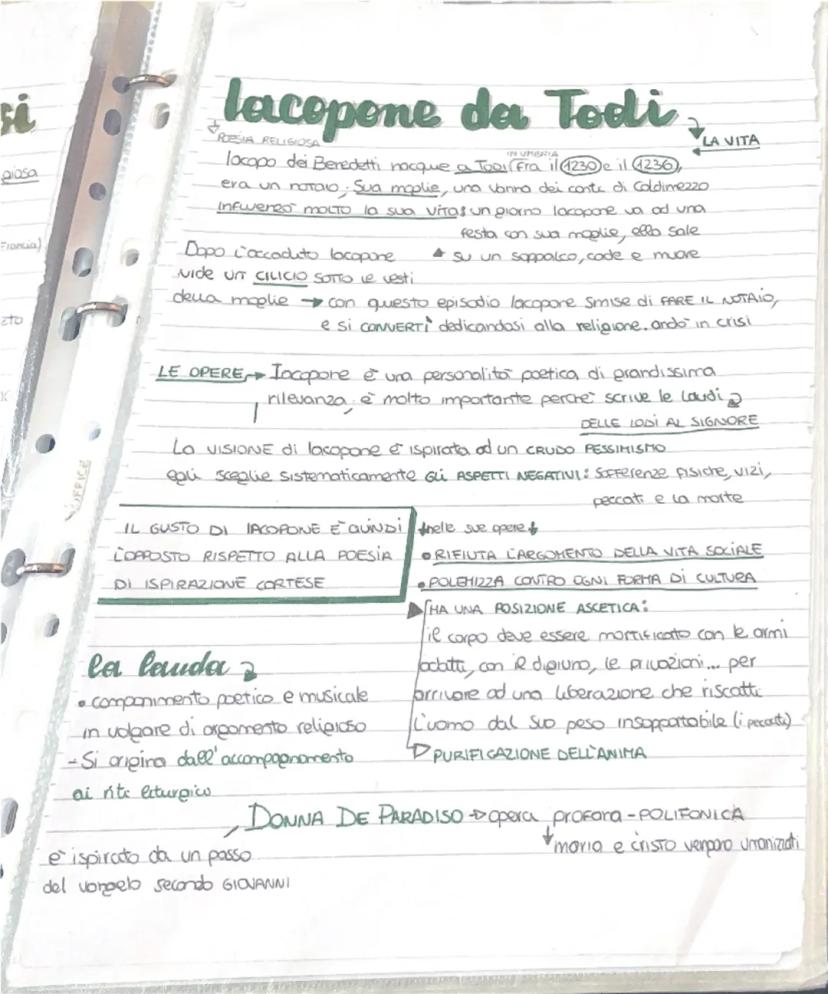 si
Iacopone da Todi
LA VITA
POESIA RELIGIOSA
IN UMBRIA
Iacopo dei Benedetti nacque a TODI (fra il 1230 e il 1236),
giosa
era un notaio. Sua moglie, una donna dei conti di Coldimezzo
INFLUENZÒ MOLTO la sua vita: un giorno Iacopone va ad una
festa con sua moglie, ella sale
Francia)
Dopo l'accaduto Iacopone
su un soppalco, cade e muore
vide un CILICIO SOTTO le vesti
della moglie → con questo episodio Iacopone smise di FARE IL NOTAIO,
e si CONVERTÌ dedicandosi alla religione. andò in crisi
LE OPERE → Iacopone è una personalità poetica di grandissima
rilevanza, è molto importante perchè scrive le laudi
DELLE LODI AL SIGNORE
La VISIONE di Iacopone è ispirata ad un CRUDO PESSIMISMO
egli sceglie sistematicamente GLI ASPETTI NEGATIVI: sofferenze fisiche, vizi,
peccati e la morte
IL GUSTO DI IACOPONE È QUINDI
L'OPPOSTO RISPETTO ALLA POESIA
DI ISPIRAZIONE CORTESE
↓nelle sue opere↓
• RIFIUTA L'ARGOMENTO DELLA VITA SOCIALE
• POLEMIZZA CONTRO OGNI FORMA DI CULTURA
HA UNA POSIZIONE ASCETICA:
il corpo deve essere mortificato con le armi
adatte, con il digiuno, le privazioni... per
arrivare ad una liberazione che riscatti
l'uomo dal suo peso insopportabile (i peccati)
PURIFICAZIONE DELL'ANIMA
la lauda
• componimento poetico e musicale
in volgare di argomento religioso
- Si origina dall'accompagnamento
ai riti liturgico
DONNA DE PARADISO → opera profana - POLIFONICA
maria e cristo vengono umanizzati
è ispirato da un passo
del vangelo secondo GIOVANNI